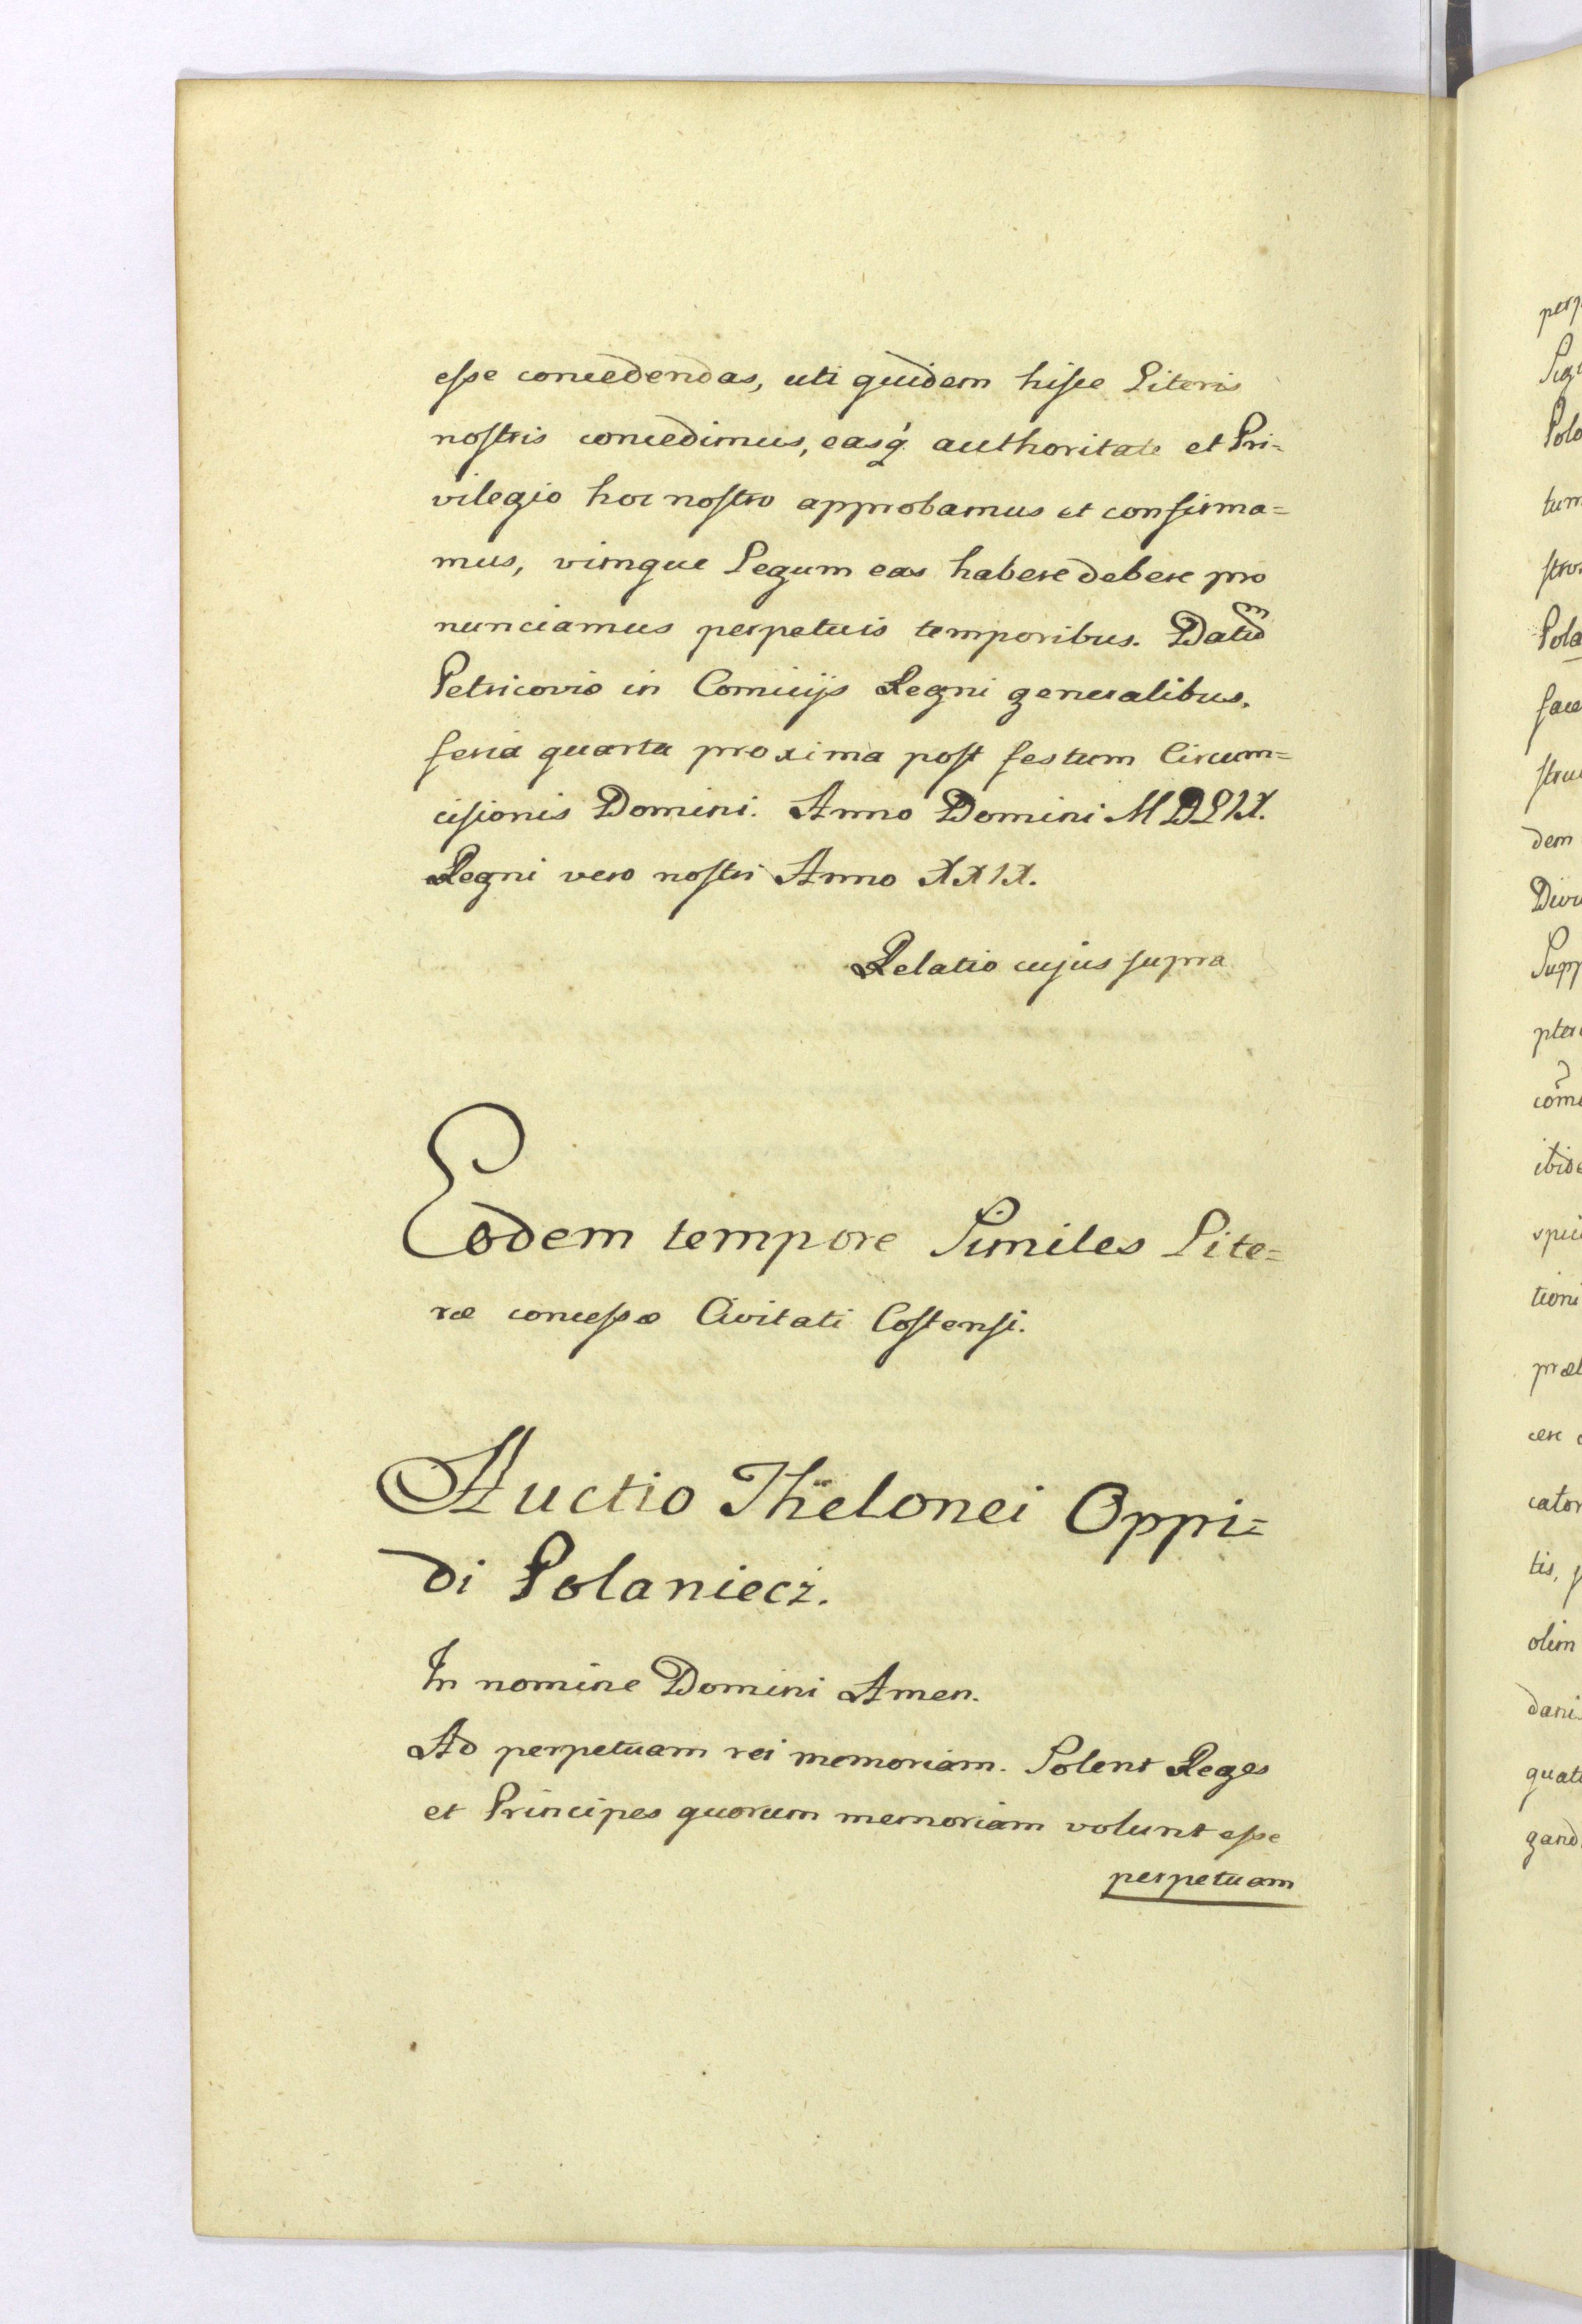 esse concedendas, uti quidem hisce Literis
nostris concedimus, easq́ authoritate et Pri=
vilegio hoc nostro approbamus et confirma=
mus, vimque Legum eas habere debere pro
nunciamus perpetuis temporibus. Datum
Petricovio in Comicijs Regni generalibus.
feria quarta proxima post festum Circum=
cisionis Domini. Anno Domini MDLIX.
Regni vero nostri Anno XXIX.
Relatio cujus supra
Eodem tempore Similes Lite=
ræ concessæ Civitati Costensi.
Auctio Thelonei Oppi=
di Polaniecz.
In nomine Domini Amen.
Ad perpetuam rei memoriam. Solent Reges
et Principes quorum memoriam volunt esse
perpetuam